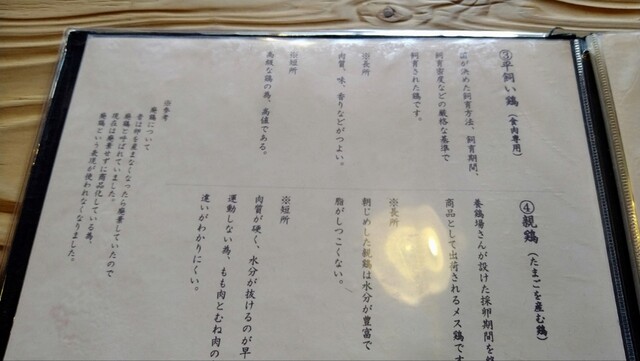 ③平飼い鶏（食肉専用）
国が決めた飼育方法、飼育期間、
飼育密度などの厳格な基準で
飼育された鶏です。
※長所
肉質、味、香りなどがつよい。
※短所
高級な鶏の為、高値である。
※参考
廃鶏について
昔は卵を産まなくなったら廃棄していたので
廃鶏と呼ばれていました。
現在は廃棄せずに商品化している為、
廃鶏という表現が使われなくなりました。
④親鶏（たまごを産む鶏）
養鶏場さんが設けた採卵期間を
商品として出荷されるメス鶏です
※長所
朝じめした親鶏は水分が豊富で
脂がしつこくない。
※短所
肉質が硬く、水分が抜けるのが早
運動しない為、もも肉とむね肉の
違いがわかりにくい。